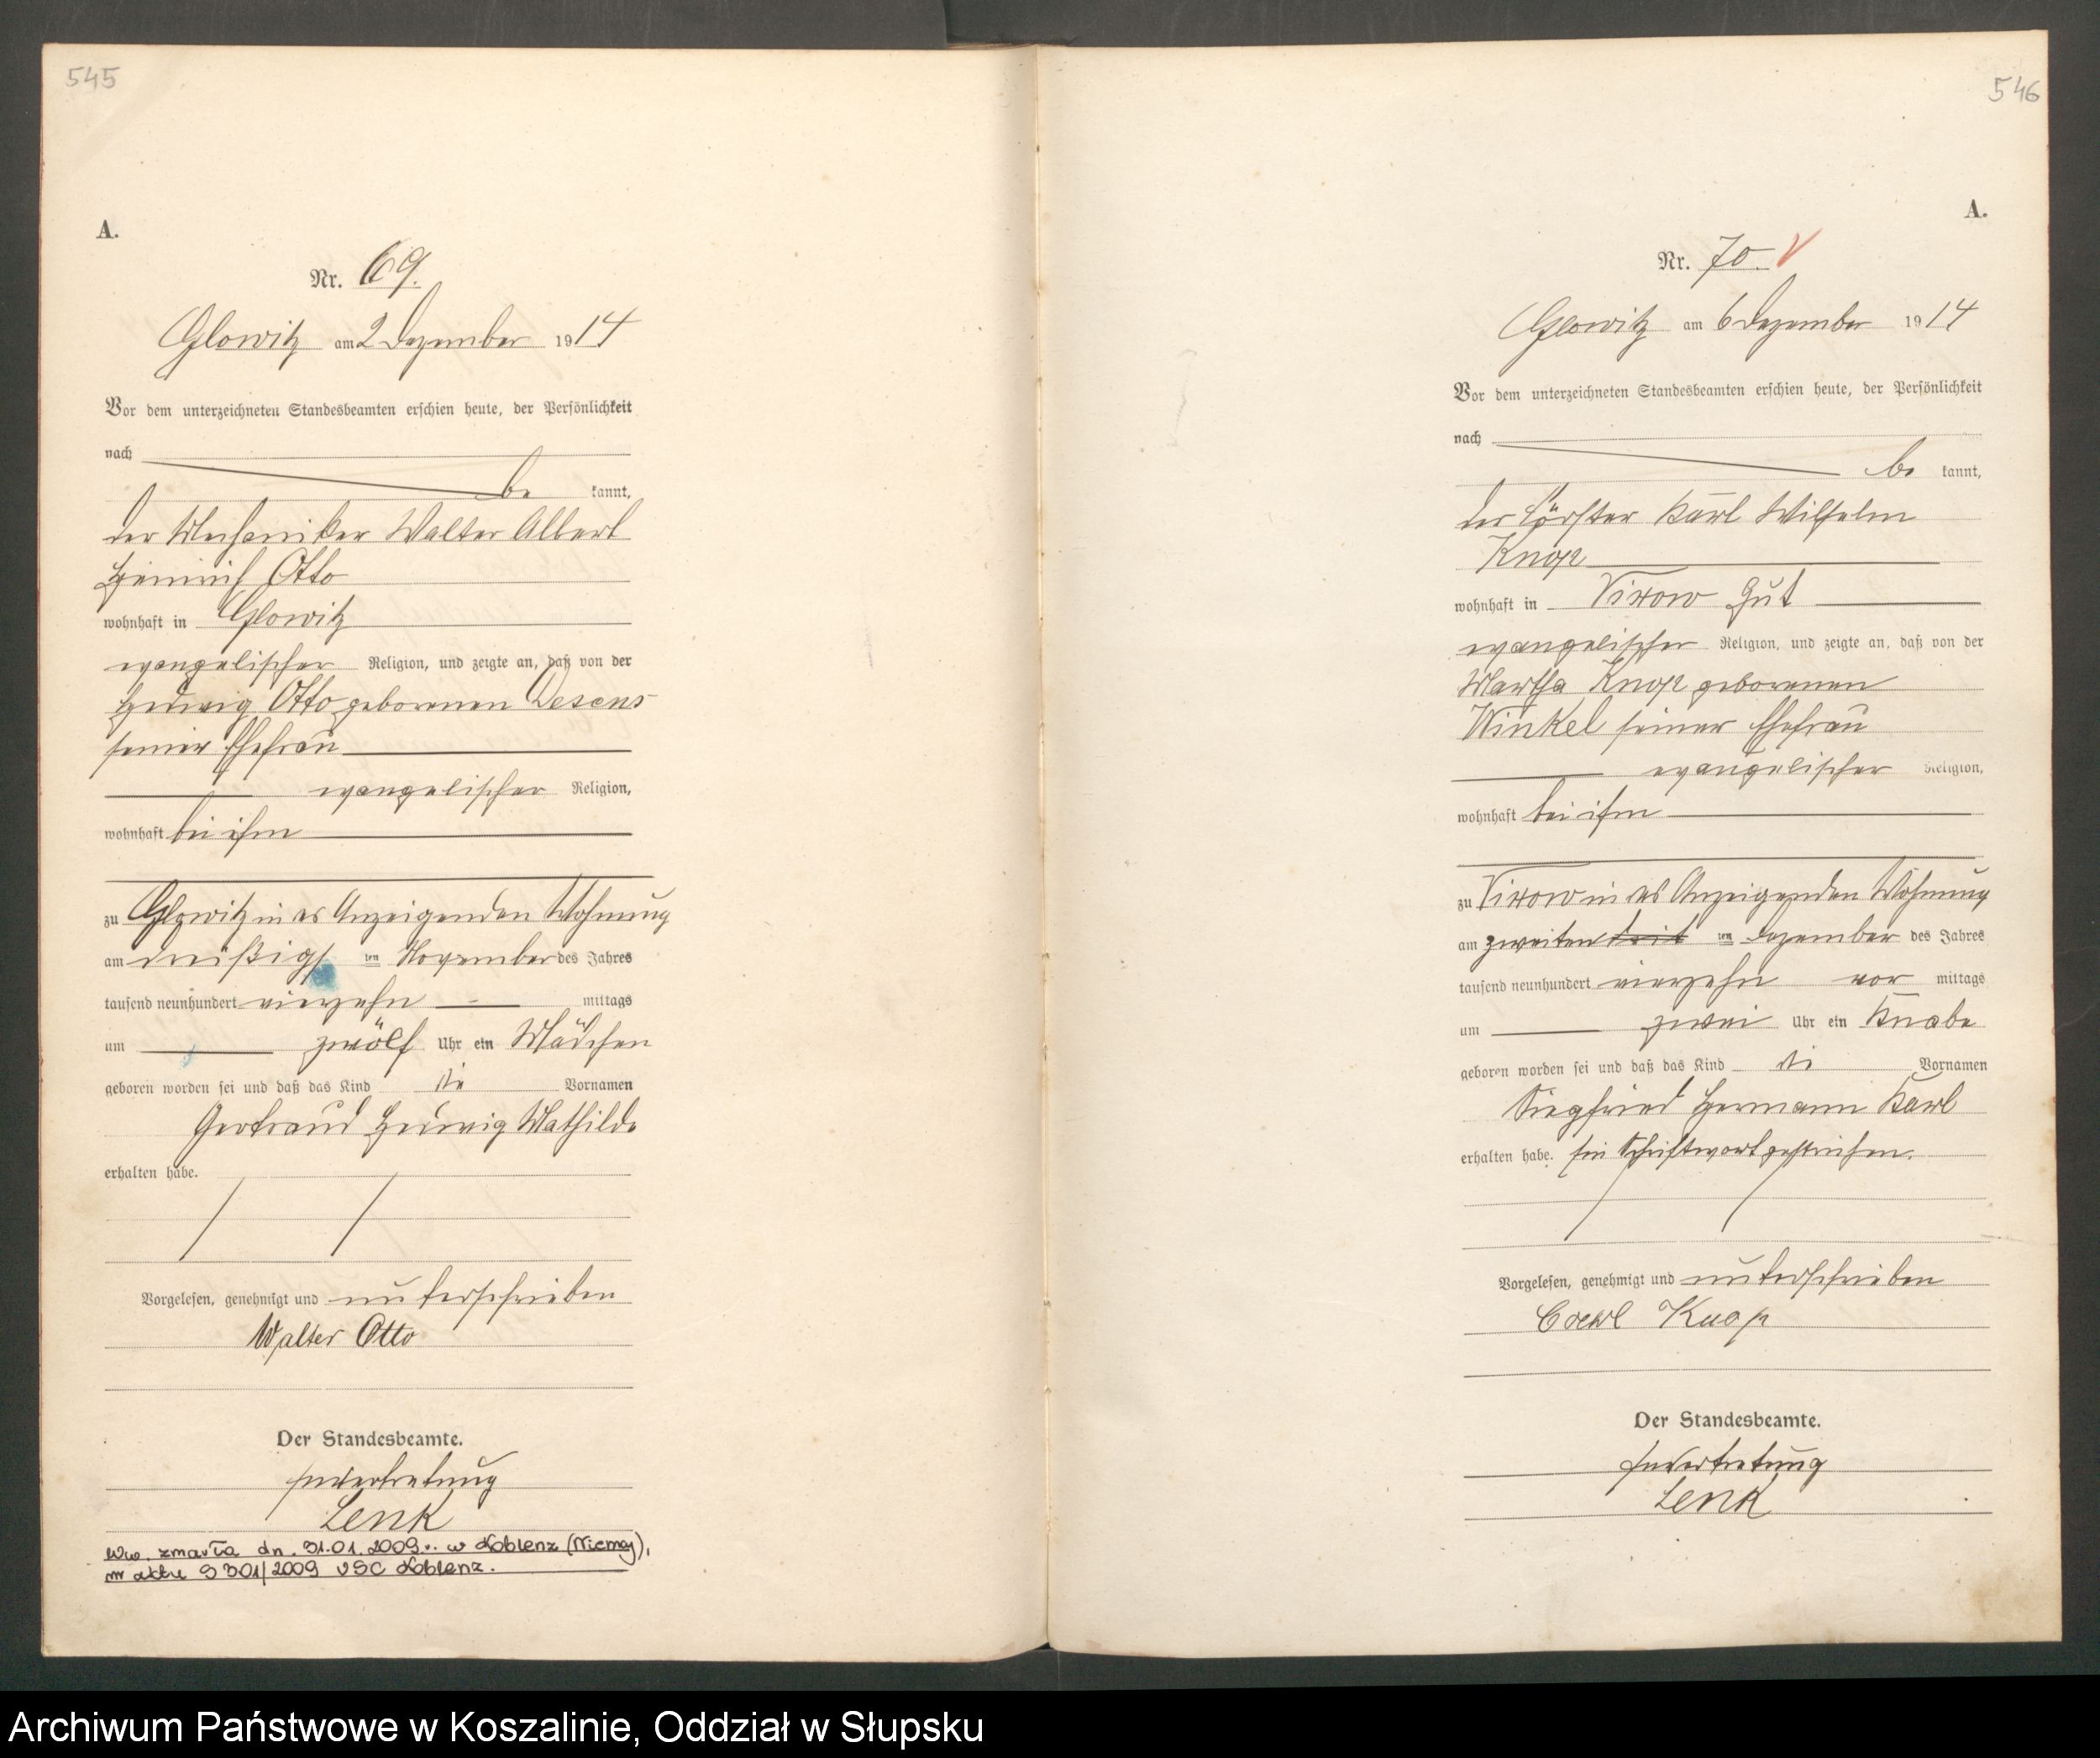 545
A.
Nr. 69.
Glowitz am 2 Dezember 1914
Vor dem unterzeichneten Standesbeamten erschien heute, der Persönlichkeit
nach
be kannt,
der Mechaniker Walter Albert
Heinrich Otto
wohnhaft in Glowitz
evangelischer Religion, und zeigte an, daß von der
Hedwig Otto geborenen Desens
seiner Ehefrau
evangelischer Religion,
wohnhaft bei ihm
zu Glowitz in des Anzeigenden Wohnung
am dreißigsten November des Jahres
tausend neunhundert vierzehn mittags
um zwölf Uhr ein Mädchen
geboren worden sei und daß das Kind die Vornamen
Gertraud Hedwig Mathilde
erhalten habe.
Vorgelesen, genehmigt und unterschrieben
Walter Otto
Der Standesbeamte.
In Vertretung
Lenk
Ww. zmarła dn. 31.01.2009r. w Koblenz (Niemcy),
nr aktu S 301/2009 USC Koblenz.
546
A.
Nr. 70.
Glowitz am 6 Dezember 1914
Vor dem unterzeichneten Standesbeamten erschien heute, der Persönlichkeit
nach
be kannt,
der Förster Karl Wilhelm
Knop
wohnhaft in Vixow Gut
evangelischer Religion, und zeigte an, daß von der
Martha Knop geborenen
Winkel seiner Ehefrau
evangelischer Religion,
wohnhaft bei ihm
zu Vixow in des Anzeigenden Wohnung
am zweiten ten Dezember des Jahres
tausend neunhundert vierzehn vor mittags
um zwei Uhr ein Knabe
geboren worden sei und daß das Kind die Vornamen
Siegfried Hermann Karl
erhalten habe. Ein Schriftwort gestrichen.
Vorgelesen, genehmigt und unterschrieben
Carl Knop
Der Standesbeamte.
In Vertretung
Lenk
Archiwum Państwowe w Koszalinie, Oddział w Słupsku